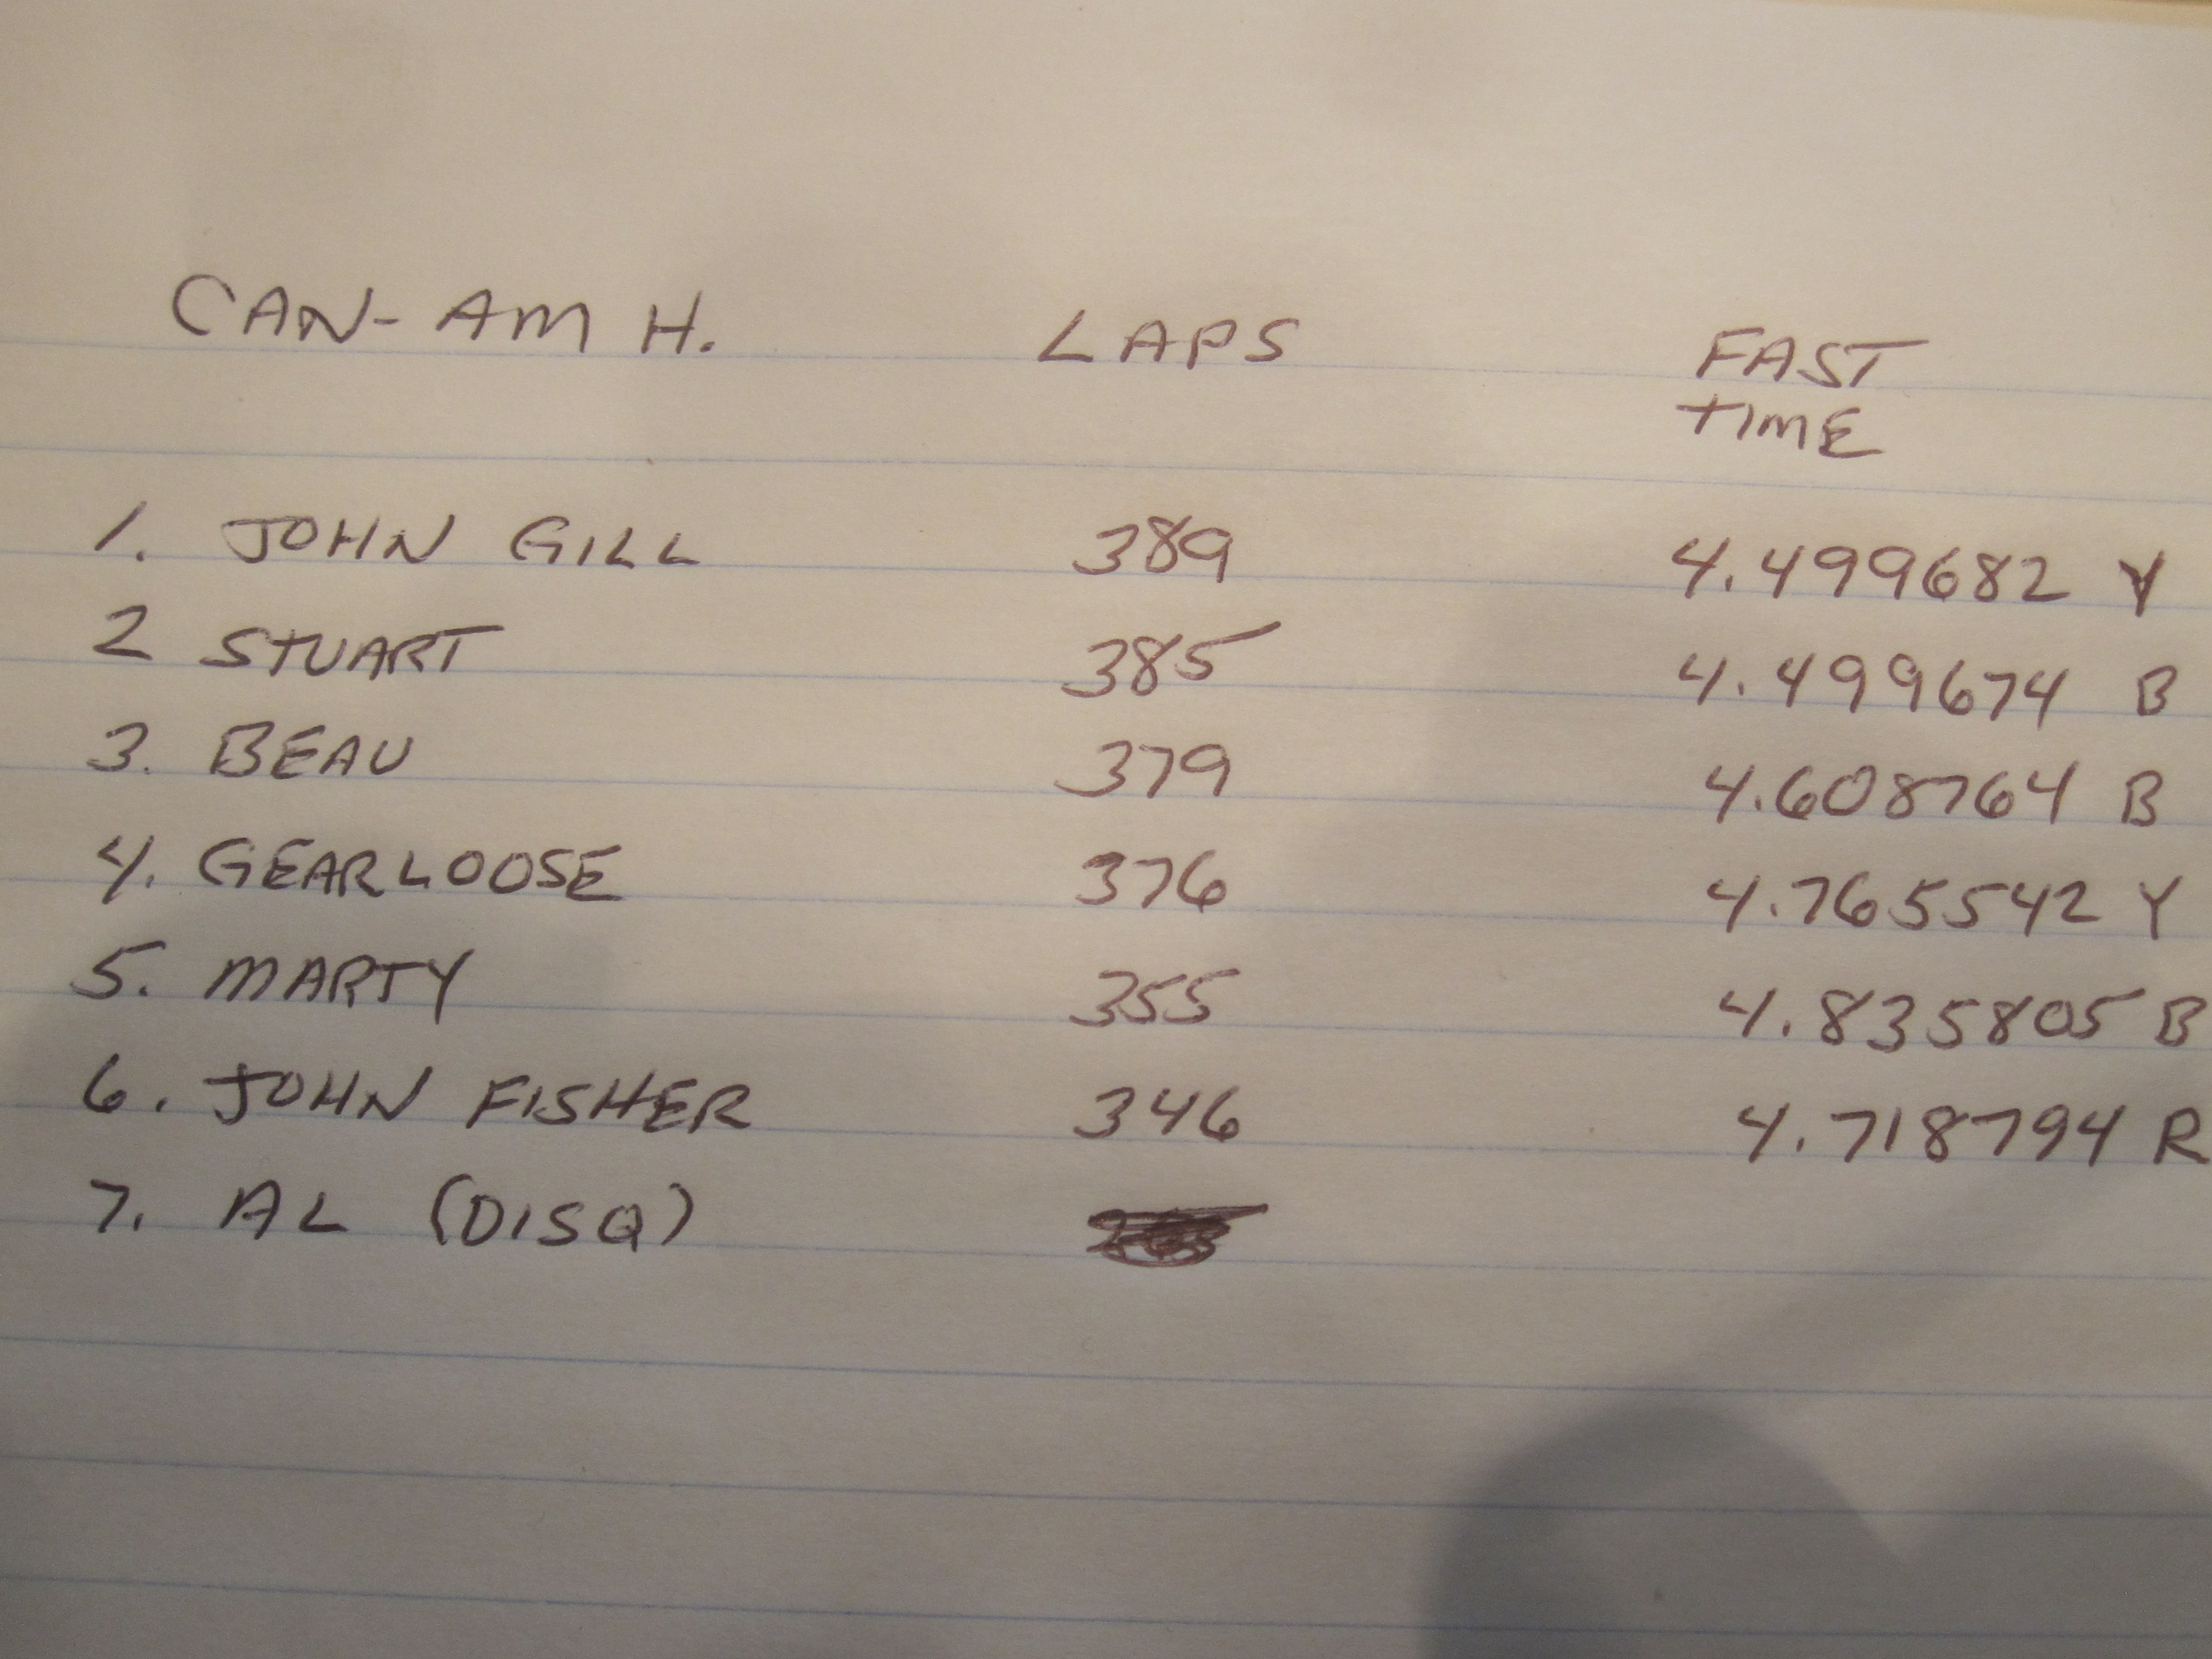 CAN-AM H. LAPS FAST
TIME
1. JOHN GILL 389 4.499682 Y
2 STUART 385 4.499674 B
3. BEAU 379 4.608764 B
4. GEARLOOSE 376 4.765542 Y
5. MARTY 355 4.835805 B
6. JOHN FISHER 346 4.718794 R
7. AL (DISQ)